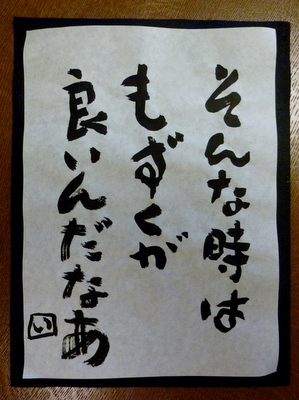 そんな時は
もずくが
良いんだなあ
い